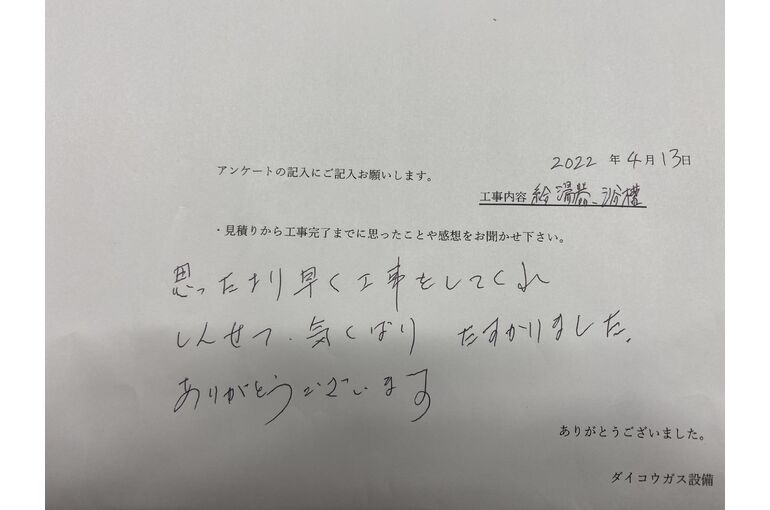 2022 年 4月 13日
アンケートの記入にご記入お願いします。
工事内容 給湯器、浴槽
・見積りから工事完了までに思ったことや感想をお聞かせ下さい。
思ったより早く工事をしてくれ
しんせつ、気くばり たすかりました。
ありがとうございます
ありがとうございました。
ダイコウガス設備